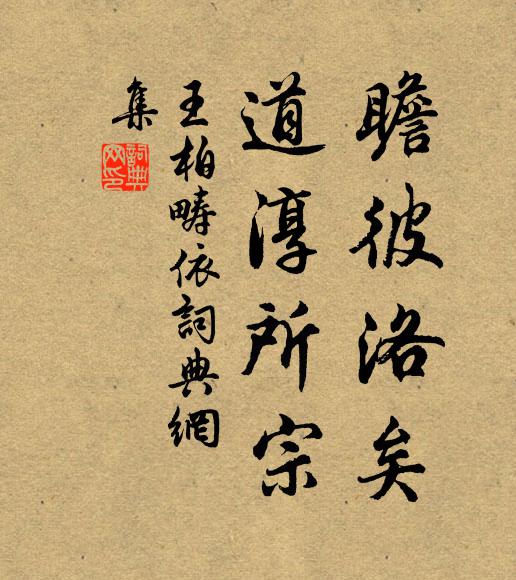 瞻彼洛矣
道淳所宗
王柏疇依詞典網
集
詞典網印